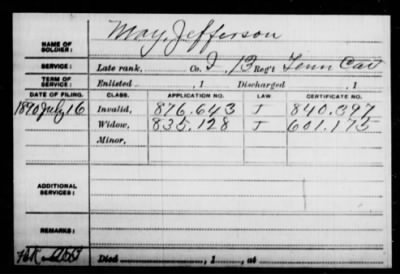 NAME OF SOLDIER: May, Jefferson
SERVICE: Late rank, Co. I, 13 Reg't Tenn Cav
TERM OF SERVICE: Enlisted , 1 Discharged , 1
DATE OF FILING. CLASS. APPLICATION NO. LAW. CERTIFICATE NO.
1890 July 16 Invalid, 876.643 J 840.397
Widow, 835.128 J 601.175
Minor,
ADDITIONAL SERVICES:
REMARKS:
Died , 1 , at